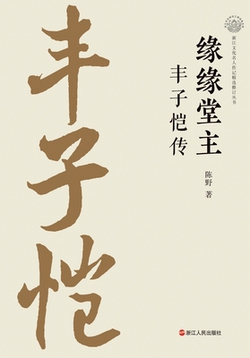 浙江文化名人传记精选修订丛书
缘缘堂主
丰子恺传
陈野 著
丰子恺
浙江人民出版社